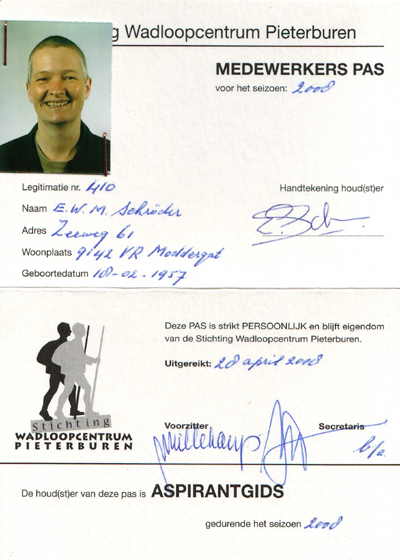 g Wadloopcentrum Pieterburen
MEDEWERKERS PAS
voor het seizoen: 2008
Legitimatie nr. 410
Handtekening houd(st)er
Naam E.W.M. Schröder
Adres Zeeweg 61
Woonplaats 9142 VR Moddergat
Geboortedatum 18-02-1957
Deze PAS is strikt PERSOONLIJK en blijft eigendom
van de Stichting Wadloopcentrum Pieterburen.
Uitgereikt: 28 april 2008
Stichting
WADLOOPCENTRUM
PIETERBUREN
Voorzitter
Secretaris
De houd(st)er van deze pas is ASPIRANTGIDS
gedurende het seizoen 2008